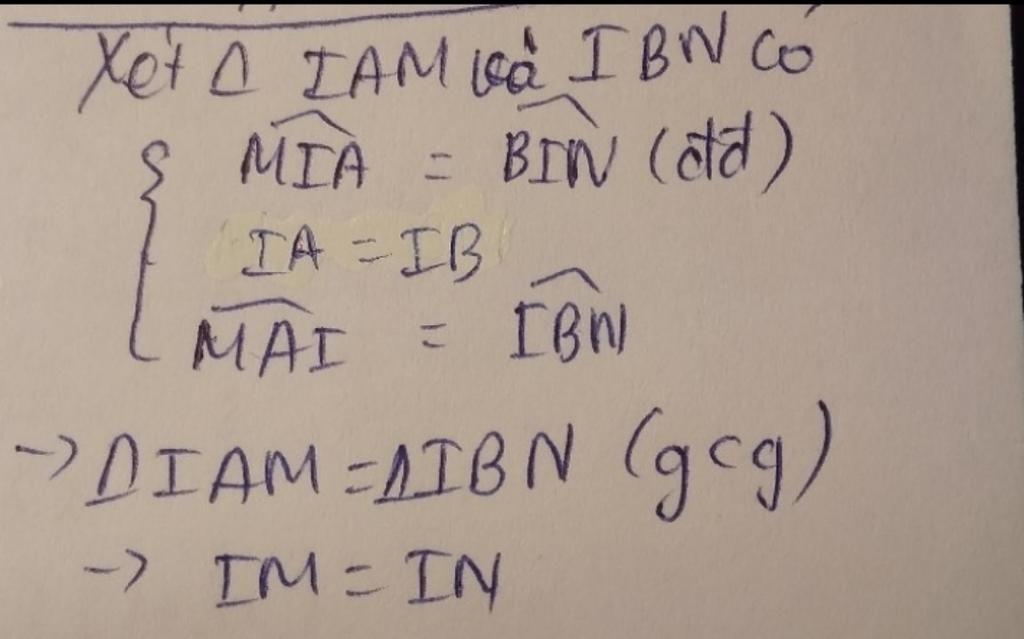 Xét Δ IAM và IBN có
{ \widehat{MIA} = \widehat{BIN} (đđ)
IA = IB
\widehat{MAI} = \widehat{IBN}
-> ΔIAM = ΔIBN (gcg)
-> IM = IN